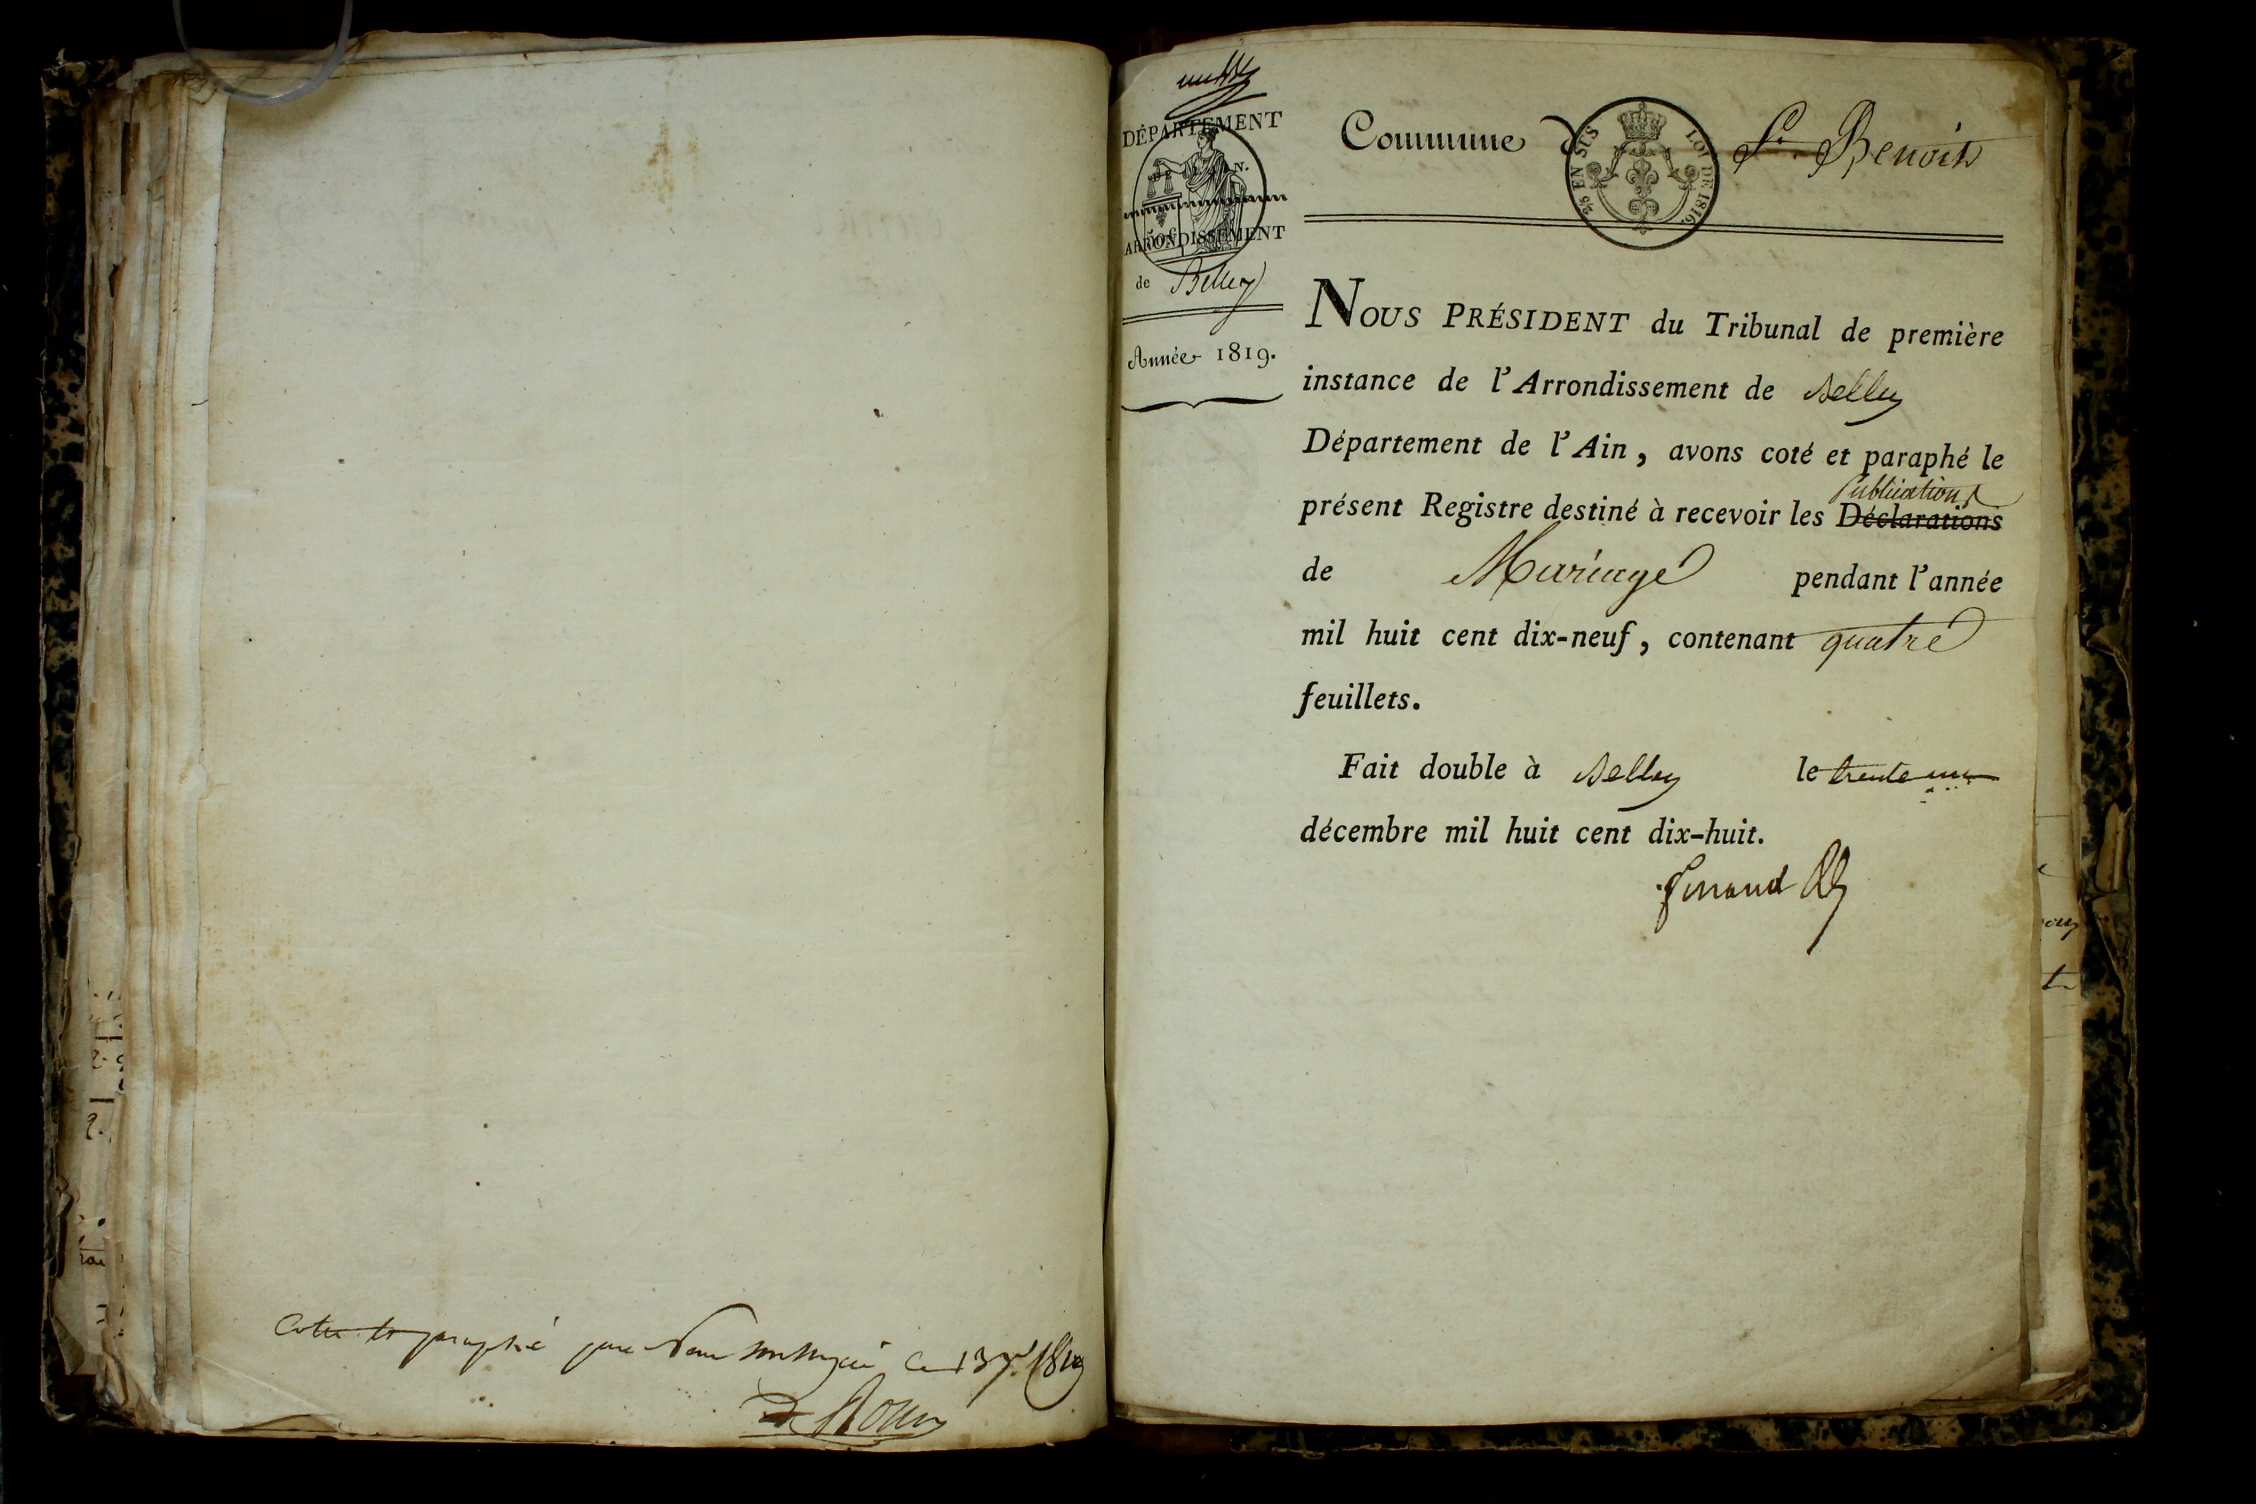 paraphé par Nous ce 1819
DÉPARTEMENT
N.
50 C
ARRONDISSEMENT
de Belley
Année 1819.
Commune d St. Benoit
25 EN SUS LOI DE 1816
NOUS PRÉSIDENT du Tribunal de première
instance de l'Arrondissement de Belley
Département de l'Ain, avons coté et paraphé le
Publications
présent Registre destiné à recevoir les Déclarations
de Mariage pendant l'année
mil huit cent dix-neuf, contenant quatre
feuillets.
Fait double à Belley le trente un
décembre mil huit cent dix-huit.